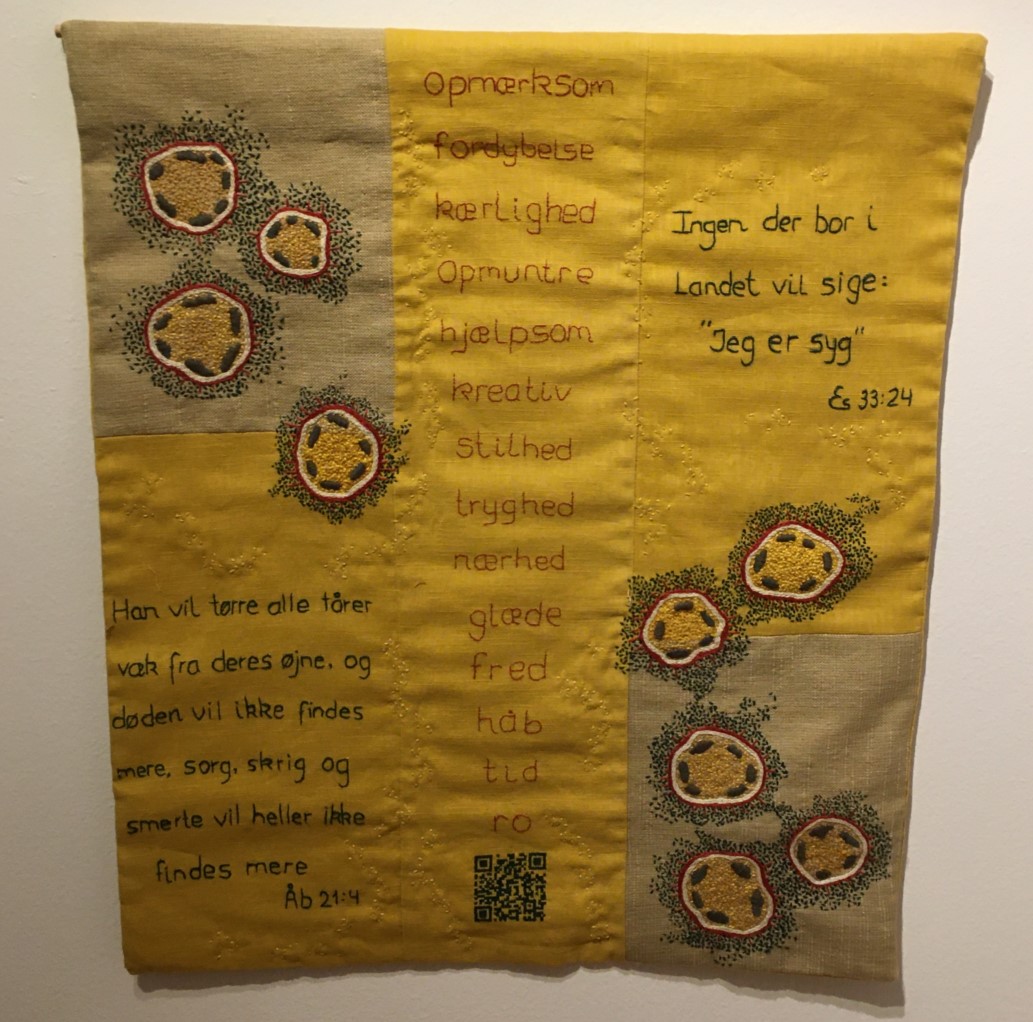 Opmærksom
fordybelse
kærlighed
Opmuntre
hjælpsom
kreativ
stilhed
tryghed
nærhed
glæde
fred
håb
tid
ro
Han vil tørre alle tårer
væk fra deres øjne, og
døden vil ikke findes
mere, sorg, skrig og
smerte vil heller ikke
findes mere
Åb 21:4
Ingen der bor i
Landet vil sige:
"Jeg er syg"
Es 33:24